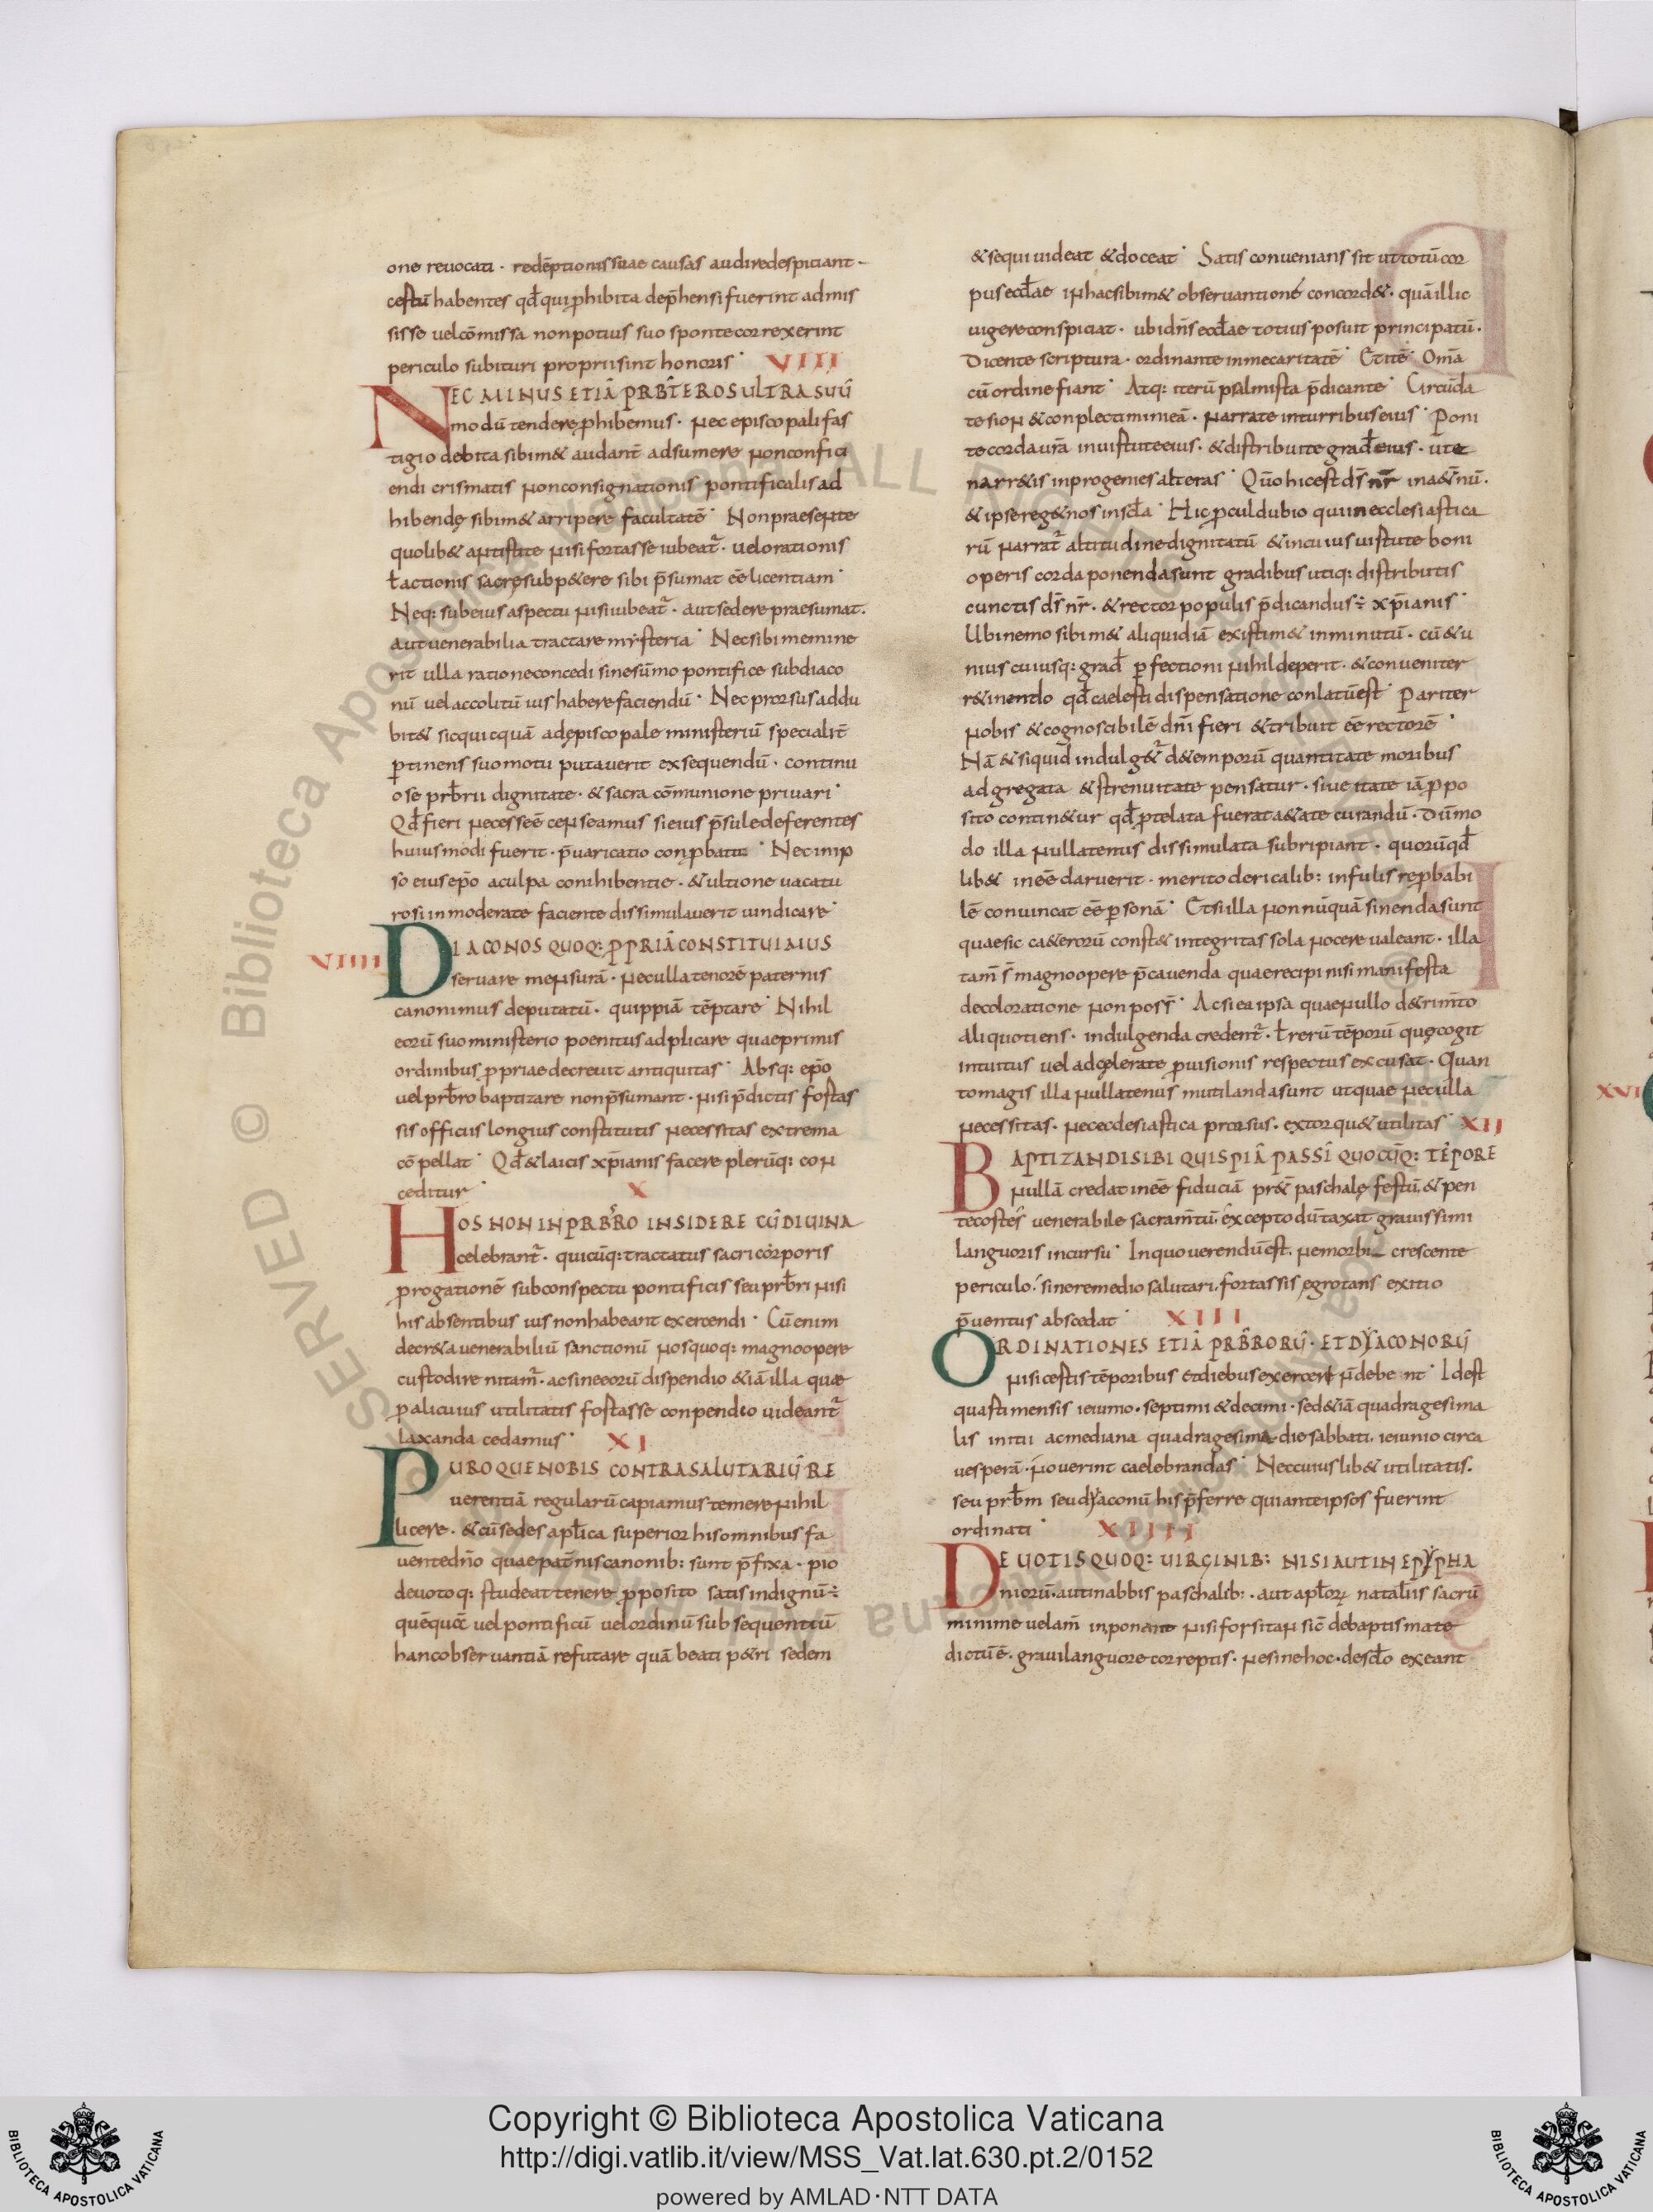 one reuocati · redēptionis suae causas audire despiciant ·
cestū habentes qđ qui ꝓhibita dep̄hensi fuerint admis
sisse uel cōmissa non potius suo sponte correxerint
periculo subituri proprii sint honoris · VIII
NEC MINUS ETIĀ PRB̄TEROS ULTRA SUŪ
modū tendere ꝓhibemus · nec episcopali fas
tigio debita sibim& audant̄ adsumere non confici
endi crismatis non consignationis pontificalis ad
hibendę sibim& arripere facultatē · Non praesente
quolib& antistite nisi fortasse iubeat̄ · uel orationis
ł actionis sacrę subp&ere sibi p̄sumat eē licentiam ·
Neq: sub eius aspectu nisi iubeat̄ · aut sedere praesumat ·
aut uenerabilia tractare mysteria · Nec sibi memine
rit ulla ratione concedi sine sūmo pontifice subdiaco
nū uel accolitū ius habere faciendū · Nec prorsus addu
bit& sic quicquā ad episcopale ministeriū specialit̄
ꝑtinens suo motu putauerit exsequendū · continu
o se prb̄rii dignitate · & sacra cōmunione priuari ·
Qđ fieri necesse ē censeamus si eius p̄sule deferentes
huiusmodi fuerit · p̄uaricatio conꝓbata · Nec in ip
so eius ep̄o a culpa conihibentie · & ultione uacatu
ro si inmoderate faciente dissimulauerit uindicare ·
VIIII DIACONOS QUOQ: ꝒPRIĀ CONSTITUIMUS
seruare mensurā · nec ulla tenorē paternis
canonimus deputatū · quippiā tēptare · Nihil
eorū suo ministerio poenitus adplicare quae primis
ordinibus ꝓpriae decreuit antiquitas · Absq: ep̄o
uel prb̄ro baptizare non p̄sumant · nisi p̄dictis fortas
sis officiis longius constitutis necessitas extrema
cōpellat · Qđ & laicis xp̄ianis facere plerūq: con
ceditur · X
HOS NON IN PRB̄RO INSIDERE CŪ DIUINA
celebrant̄ · quicūq: tractatus sacri corporis
progationē sub conspectu pontificis seu prb̄ri nisi
his absentibus ius non habeant exercendi · Cū enim
decr&a uenerabiliū sanctionū nos quoq: magnoopere
custodire nitam̄ · ac sine eorū dispendio &iā illa quae
ꝓ alicuius utilitatis fortasse conpendio uideant̄
laxanda cedamus · XI
PURO QUE NOBIS CONTRA SALUTARIŪ RE
uerentiā regularū capiamus temere nihil
licere · & cū sedes apl̄ica superior his omnibus fa
uente dn̄o quae pat̄nis canonib: sunt p̄fixa · pio
deuotoq: studeat tenere ꝓposito satis indignū ÷
quēquā uel pontificū uel ordinū subsequentiū
hanc obseruantiā refutare quā beati p&ri sedem
& sequi uideat & doceat · Satis conuenians sit ut totū cor
pus eccl̄ae in hac sibim& obseruantionē concord& · quā illic
uigere conspiciat · ubi dn̄s eccl̄ae totius posuit principatū ·
Dicente scriptura · ordinante in me caritatē · Et itē · Om̄a
cū ordine fiant · Atq: iterū psalmista p̄dicante · Circūda
te sion & conplectimini eā · narrate in turribus eius · Poni
te corda ur̄a in uirtute eius · & distribuite građ eius · ut e
narr&is in progenies alteras · Qūo hic est d̄s nr̄ in a&n̄ū ·
& ipse reg& nos in scl̄a · Hic ꝓculdubio qui in ecclesiastica
rū narrat̄ altitudine dignitatū & in cuius uirtute boni
operis corda ponenda sunt gradibus utiq: distributis
cunctis d̄s nr̄ · & rector populis p̄dicandus ÷ xp̄ianis ·
Ubi nemo sibim& aliquid iā existim& inminutū · cū & u
nius cuiusq: građ ꝑfectioni nihil deperit · & conueniter
r&inendo qđ caelesti dispensatione conlatū est · Pariter
nobis & cognoscibilē dn̄i fieri & tribuit eē rectorē ·
Nā & si quid indulg&̄ d& emporū quantitate moribus
adgregata & strenuitate pensatur · siue itate iā ꝓpo
sito contin&ur qđ ꝓtelata fuerat a&ate curandū · Dūmo
do illa nullatenus dissimulata subripiant · quorū qđ
lib& ineē daruerit · merito clericalib: infulis reꝓbabi
lē conuincat eē ꝑsonā · Etsi illa non nūquā sinenda sunt
quae sic ca&erorū const& integritas sola nocere ualeant · illa
tam̄ s̄ magnoopere p̄cauenda quae recipi nisi manifesta
decoloratione non poss̄ · Ac si ea ipsa quae nullo d&rim̄to
aliquotiens · indulgenda credent̄ · ł rerū tēporū quę cogit
intuitus uel adcęlerate ꝓuisionis respectus excusat · Quan
to magis illa nullatenus mutilanda sunt ut quae nec ulla
necessitas · nec ecclesiastica prorsus · extorqu& utilitas · XII
BAPTIZANDI SIBI QUISPIĀ PASSĪ QUOCŪQ: TĒPORE
nullā credat ineē fiduciā pr&̄ paschale festū & pen
tecosten uenerabile sacram̄tū · excepto dūtaxat grauissimi
languoris incursu · In quo uerendū est · ne morbi crescente
periculo · sine remedio salutari · fortassis ęgrotans exitio
p̄uentus abscedat · XIII
ORDINATIONES ETIĀ PRB̄RORŪ · ET DYACONORŪ
nisi certis tēporibus et diebus exercent n̄ debent · Idest
quarti mensis ieiunio · septimi & decimi · sed &iā quadragesima
lis initii ac mediana quadragesima die sabbati · ieiunio circa
uesperā · nouerint caelebrandas · Nec cuius lib& utilitatis ·
seu prb̄m seu dyaconū his p̄ferre qui ante ipsos fuerint
ordinati · XIIII
DEUOTIS QUOQ: UIRGINIB: NISI AUT IN EPYPHA
niorū · aut in abbis paschalib: · aut apl̄oꝝ natalīis sacrū
minime uelam̄ inponant nisi forsitan sic̄ de baptismate
dictū ē · graui languore correptis · ne sine hoc · de scl̄o exeant
XVI
Copyright © Biblioteca Apostolica Vaticana
http://digi.vatlib.it/view/MSS_Vat.lat.630.pt.2/0152
powered by AMLAD·NTT DATA
BIBLIOTECA APOSTOLICA VATICANA
BIBLIOTECA APOSTOLICA VATICANA